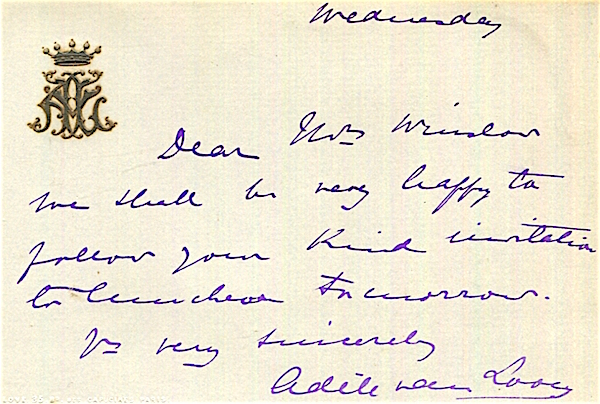 Wednesday
Dear Mrs Winslow
we shall be very happy to
follow your Kind invitation
to luncheon tomorrow.
Yrs very sincerely
Adèle van Looy